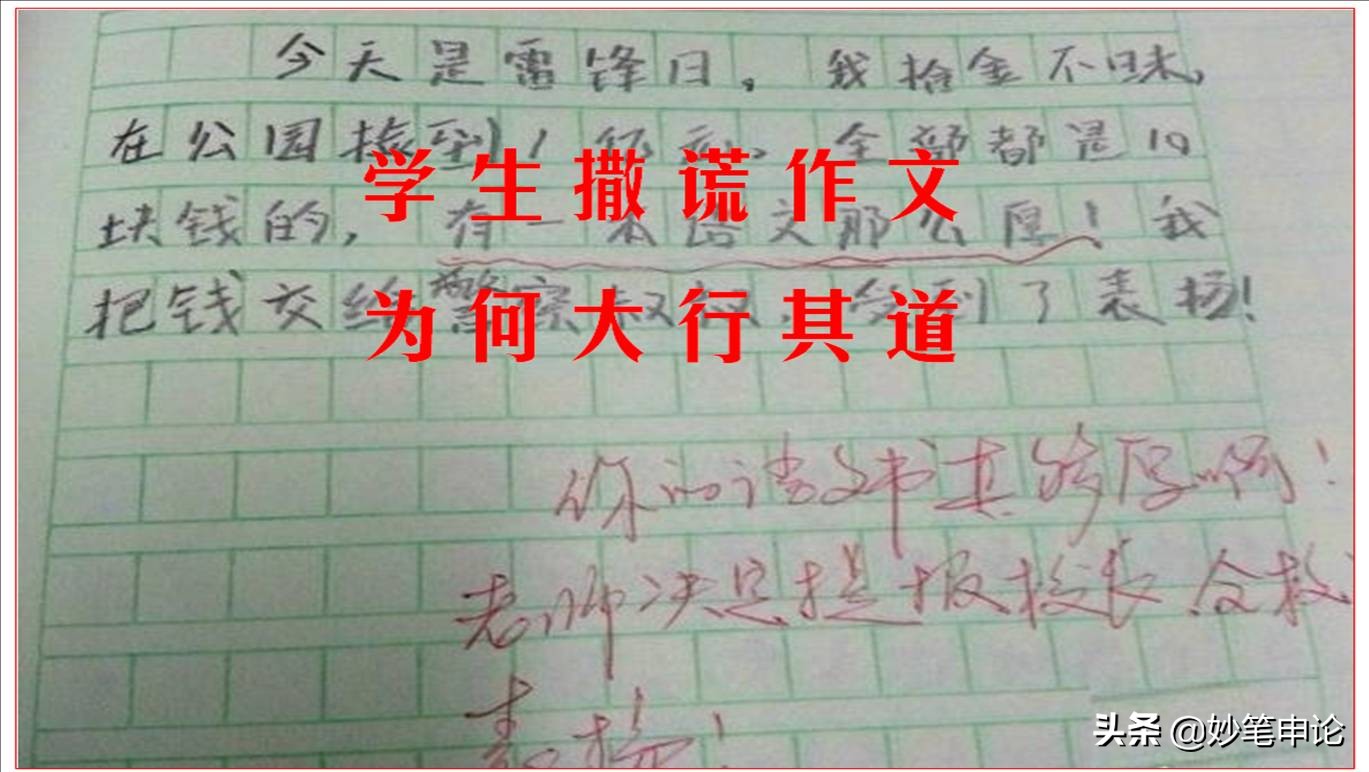 今天是雷锋日,我拾金不昧,
在公园捡到1 全部都是10
学生撒谎作文
块钱的,有一本语文那么厚!我
把钱交给警察叔叔,受到了表扬!
为何大行其道
你的语文书真够厚啊!
老师决定提报校长全校
表扬!
头条 @妙笔申论